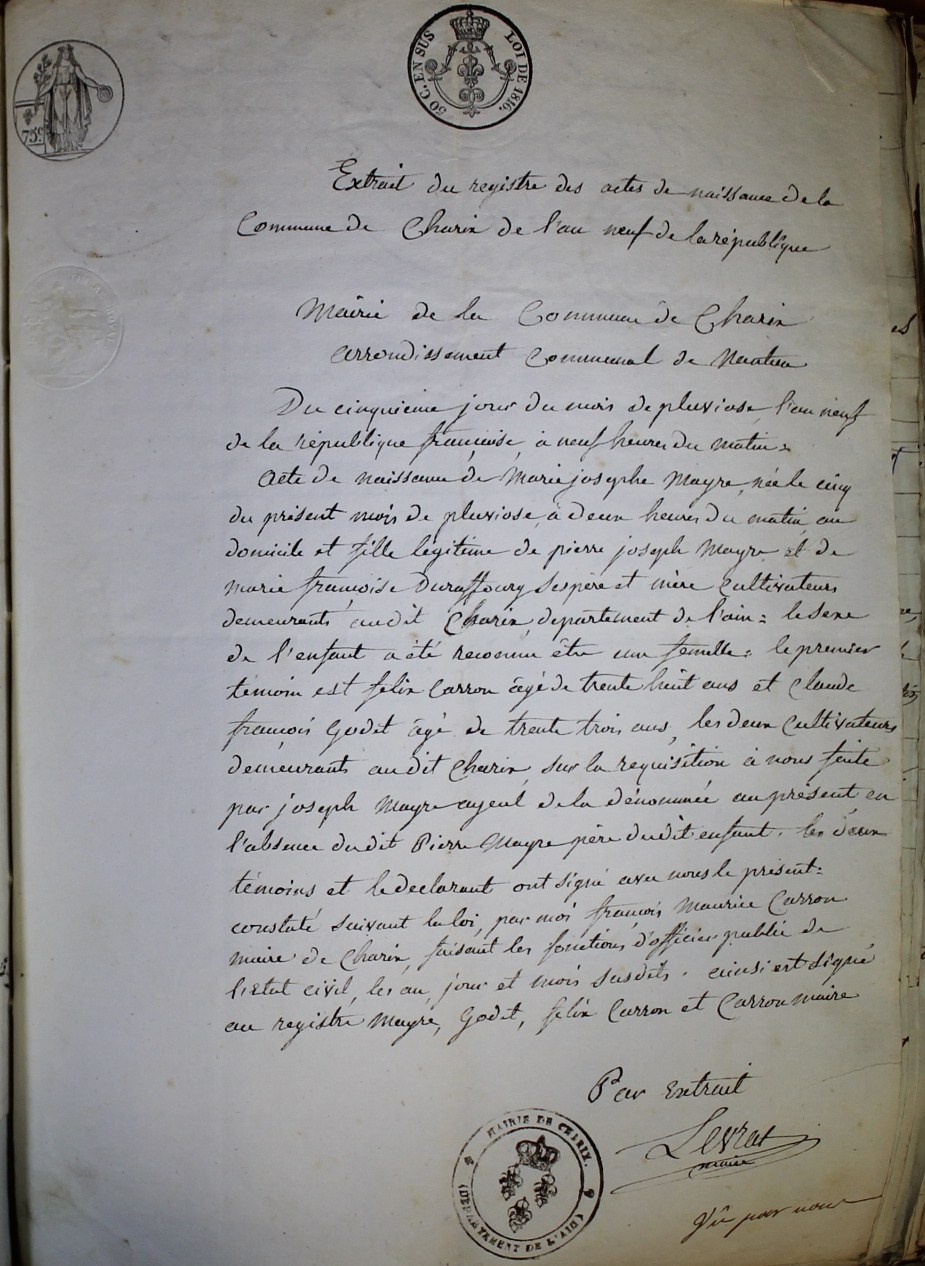 75 c
50 C. EN SUS LOI DE 1816.
Extrait du registre des actes de naissance de la
Commune de Charix de l'an neuf de la république
Mairie de la Commune de Charix
arrondissement Communal de Nantua
Du cinquieme jour du mois de pluviose, l'an neuf
de la république françoise, à neuf heures du matin =
Acte de naissance de Marie josephe Mayre, née le cinq
du présent mois de pluviose, à deux heures du matin, au
domicile et fille légitime de pierre joseph Mayre et de
marie françoise Duraffourg ses père et mère Cultivateurs
demeurants audit Charix, departement de l'ain = le sexe
de l'enfant a été reconnu être une femelle = le premier
témoin est félix Carron âgé de trente huit ans et Claude
françois Godet âgé de trente trois ans, les deux Cultivateurs
demeurants audit Charix, sur la requisition à nous faite
par joseph Mayre ayeul de la dénommée au présent en
l'absence dudit Pierre Mayre père dudit enfant. les deux
témoins et le declarant ont signé avec nous le présent =
constaté suivant la loi, par moi, françois Maurice Carron
maire de Charix, faisant les fonctions d'officier public de
l'état civil, les an, jour et mois susdits. ainsi est signé
au registre Mayre, Godet, félix Carron et Carron maire
Par extrait
Levrat
maire
MAIRIE DE CHARIX.
(DÉPARTEMENT DE L'AIN)
Vu par nous